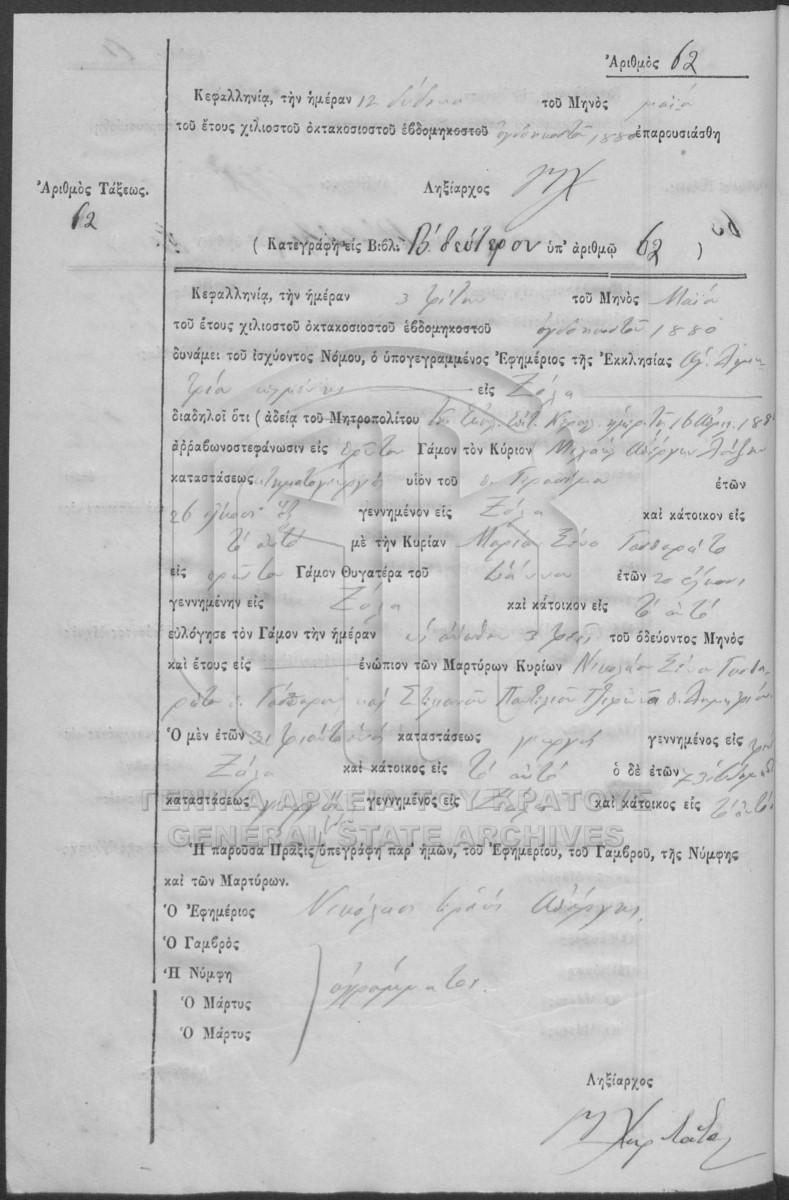 Ἀριθμὸς 62
Κεφαλληνίᾳ, τὴν ἡμέραν 12 δώδεκα τοῦ Μηνὸς μαΐου
τοῦ ἔτους χιλιοστοῦ ὀκτακοσιοστοῦ ἑβδομηκοστοῦ ὀγδοηκοστοῦ 1880 ἐπαρουσιάσθη
Ἀριθμὸς Τάξεως.
62
Ληξίαρχος
( Κατεγράφη εἰς Βιβλ: Β. δεύτερον ὑπ' ἀριθμῷ 62 )
Κεφαλληνίᾳ, τὴν ἡμέραν 3 τρίτην τοῦ Μηνὸς Μαΐου
τοῦ ἔτους χιλιοστοῦ ὀκτακοσιοστοῦ ἑβδομηκοστοῦ ὀγδοηκοστοῦ 1880
δυνάμει τοῦ ἰσχύοντος Νόμου, ὁ ὑπογεγραμμένος Ἐφημέριος τῆς Ἐκκλησίας Ἁγ. Δημη-
τρίου εἰς Ζόλα
διαδηλοῖ ὅτι ( ἀδείᾳ τοῦ Μητροπολίτου 16 Ἀπρ. 188
ἀρραβωνοστεφάνωσιν εἰς πρῶτον Γάμον τὸν Κύριον Ἀπέργην
καταστάσεως κτηματογεωργὸς υἱὸν τοῦ Γερασίμου ἐτῶν
26 εἴκοσι ἕξ γεννημένον εἰς Ζόλα καὶ κάτοικον εἰς
τὸ αὐτὸ μὲ τὴν Κυρίαν Μαρίαν Ξένο Γασπαράτο
εἰς πρῶτον Γάμον Θυγατέρα τοῦ Ἰωάννου ἐτῶν 20 εἴκοσι
γεννημένην εἰς Ζόλα καὶ κάτοικον εἰς τὸ αὐτὸ
εὐλόγησε τὸν Γάμον τὴν ἡμέραν 3 τρεῖς τοῦ ὁδεύοντος Μηνὸς
καὶ ἔτους εἰς ἐνώπιον τῶν Μαρτύρων Κυρίων Νικολάου Ξένου Γασπα-
ράτο Γάσπαρου καὶ Στυλιανοῦ Δημητρίου
Ὁ μὲν ἐτῶν 31 τριάντα ἕνα καταστάσεως γεωργὸς γεννημένος εἰς
Ζόλα καὶ κάτοικος εἰς τὸ αὐτὸ ὁ δὲ ἐτῶν
καταστάσεως γεωργὸς γεννημένος εἰς Ζόλα καὶ κάτοικος εἰς τὸ αὐτὸ
ΓΕΝΙΚΑ ΑΡΧΕΙΑ ΤΟΥ ΚΡΑΤΟΥΣ
GENERAL STATE ARCHIVES
Ἡ παροῦσα Πρᾶξις ὑπεγράφη παρ' ἡμῶν, τοῦ Ἐφημερίου, τοῦ Γαμβροῦ, τῆς Νύμφης
καὶ τῶν Μαρτύρων.
Ὁ Ἐφημέριος Νικόλαος ἱερεὺς Ἀπέργης
Ὁ Γαμβρὸς
Ἡ Νύμφη
ἀγράμματοι.
Ὁ Μάρτυς
Ὁ Μάρτυς
Ληξίαρχος